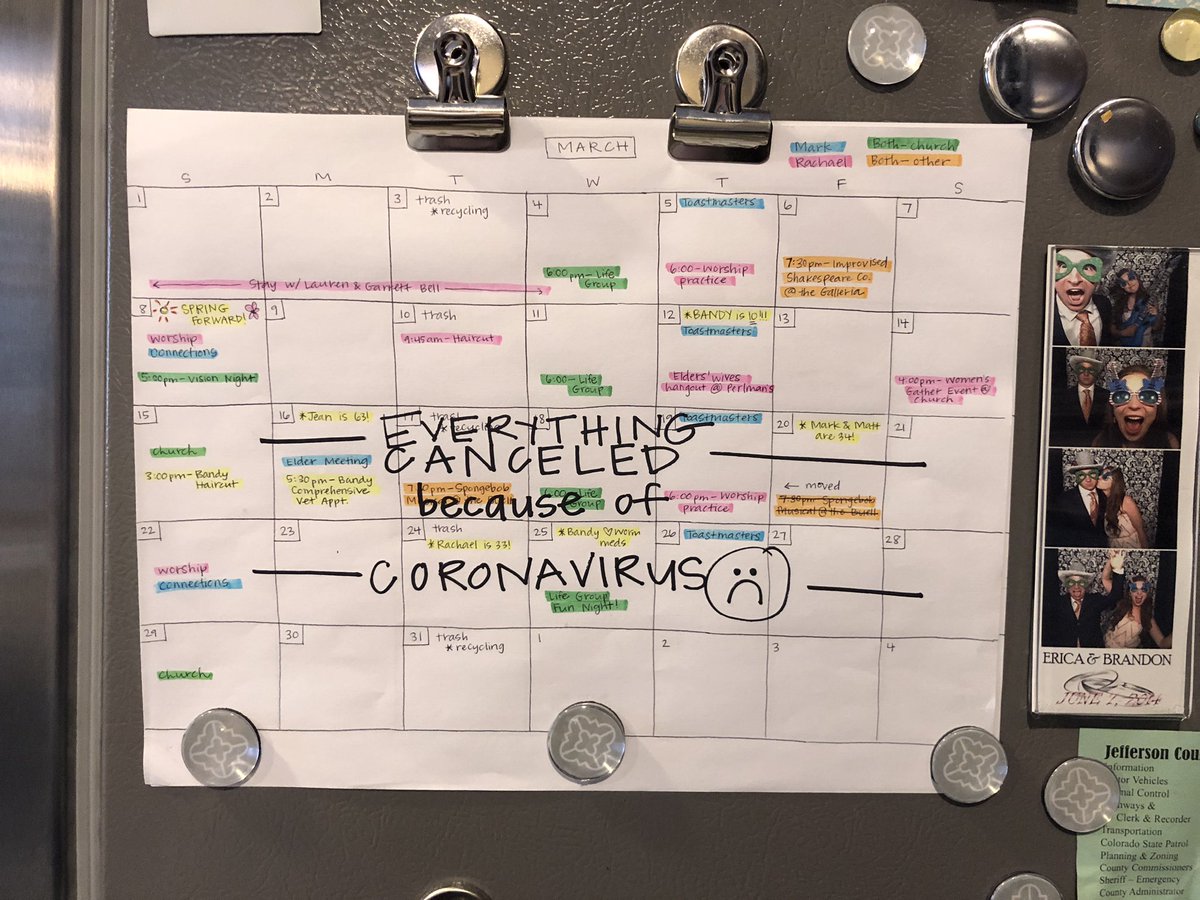 MARCH
Mark
Rachael
Both-church
Both-other
S M T W T F S
1
2
3 trash
*recycling
4
6:00pm-Life
Group
5 Toastmasters
6:00-Worship
practice
6
7:30pm-Improvised
Shakespeare Co.
@ the Galleria
7
Stay w/ Lauren & Garrett Bell
8 SPRING
FORWARD!
Worship
Connections
5:00pm-Vision Night
9
10 trash
9:45am-Haircut
11
6:00-Life
Group
12 *BANDY is 10!!!
Toastmasters
Elders' wives
hangout @ Perlman's
13
14
4:00pm-Women's
Gather Event @
Church
15
church
3:00pm-Bandy
Haircut
16 *Jean is 63!
Elder Meeting
5:30pm-Bandy
Comprehensive
Vet Appt.
trash
*recycling
7:30pm-Spongebob
18
6:00-Life
Group
19 Toastmasters
6:00pm-Worship
practice
20 *Mark & Matt
are 34!
← moved
7:30pm-Spongebob
Musical @ the Buell
21
EVERYTHING
CANCELED
because of
CORONAVIRUS
22
Worship
Connections
23
24 trash
*Rachael is 33!
25 *Bandy ♡worm
meds
Life Group
Fun Night!
26 Toastmasters
27
28
29
church
30
31 trash
*recycling
1
2
3
4
ERICA & BRANDON
JUNE 7, 2014
Jefferson Cou
Information
tor Vehicles
mal Control
hways &
Clerk & Recorder
Transportation
Colorado State Patrol
Planning & Zoning
County Commissioners
Sheriff – Emergency
County Administrator